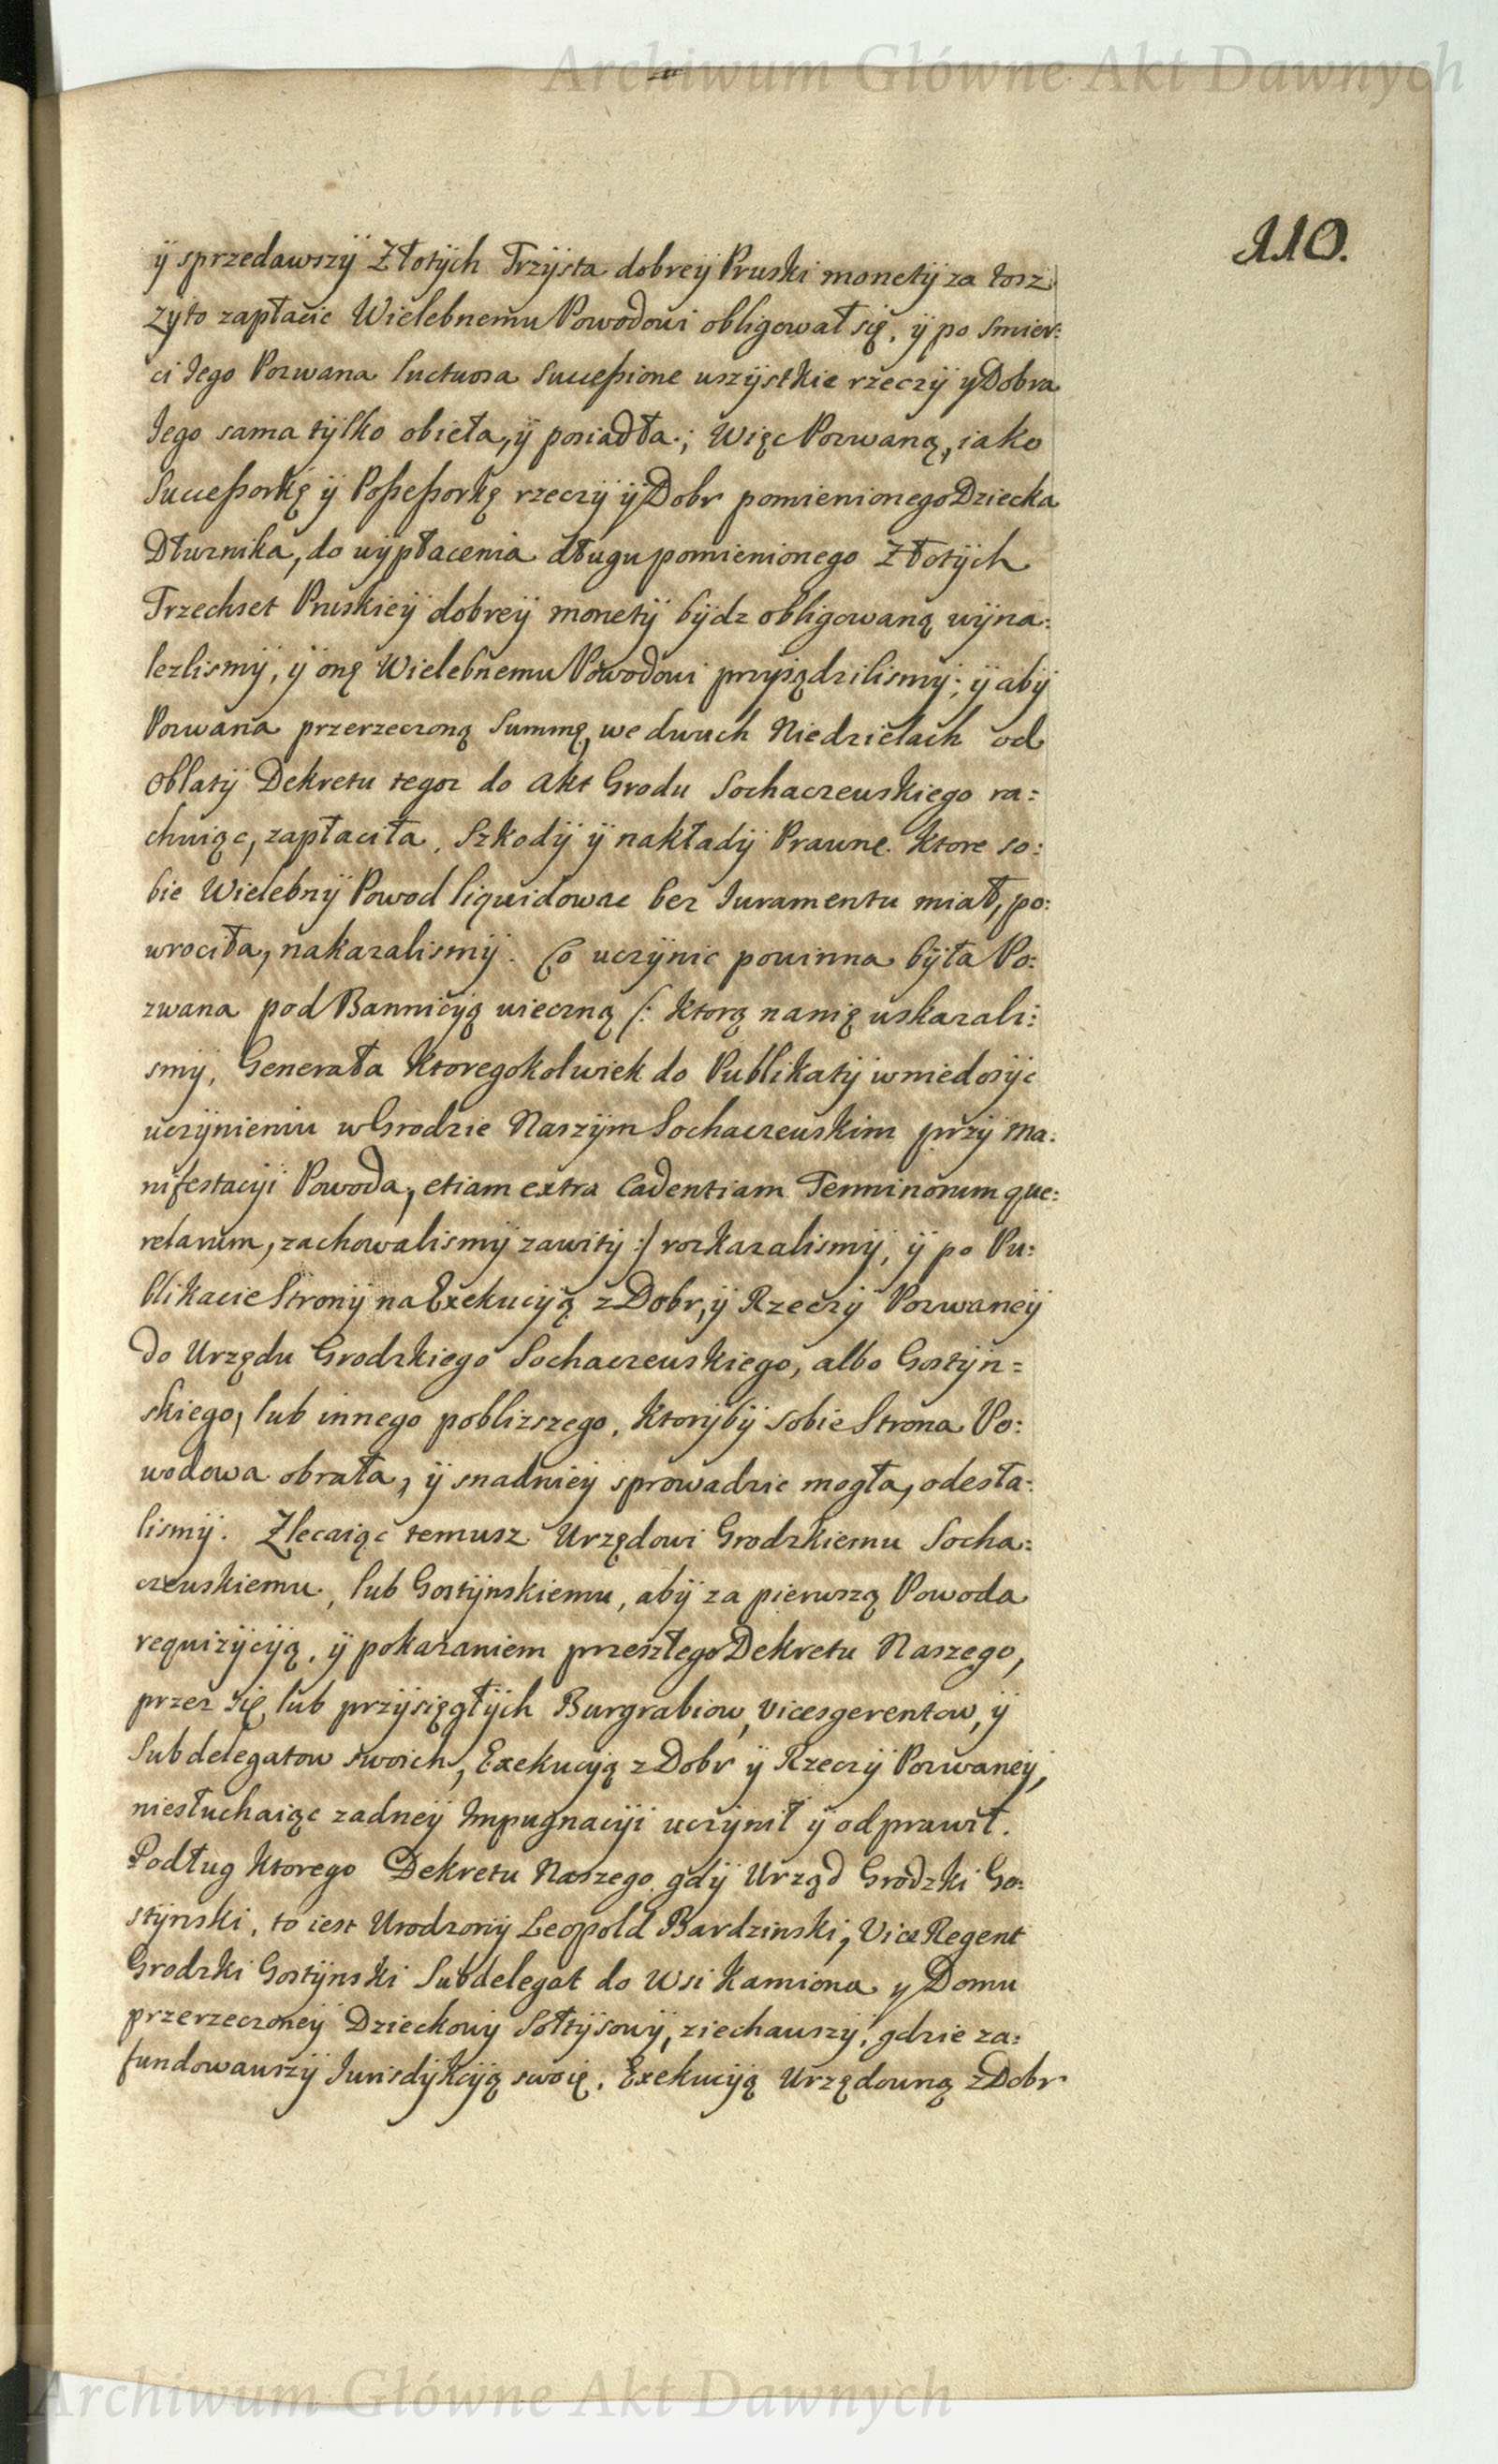 Archiwum Główne Akt Dawnych
110.
ÿ sprzedawszÿ Złotÿch Trzÿsta dobreÿ Pruski monetÿ za tosz
Zÿto zapłacic Wielebnemu Powodowi obligował się, ÿ po smier:
ci Jego Pozwana luctuosa Succeßione wszÿstkie rzeczÿ y Dobra
Jego sama tÿlko obięła, ÿ posiadła; Więc Pozwaną, iako
Succeßorkę ÿ Poßeßorkę rzeczÿ ÿ Dobr pomienionego Dziecka
Dłuznika, do wÿpłacenia długu pomienionego Złotÿch
Trzechset Pruskieÿ dobreÿ monetÿ bÿdz obligowaną wÿna:
lezlismÿ, ÿ onę Wielebnemu Powodowi przÿsądzilismÿ; ÿ abÿ
Pozwana przerzeczoną Summę, we dwuch Niedzielach od
Oblatÿ Dekretu tegoz do Akt Grodu Sochaczewskiego ra=
chuiąc, zapłaciła, Szkodÿ ÿ nakładÿ Prawne. Ktore so:
bie Wielebnÿ Powod liquidowac bez Juramentu miał, po:
wrociła, nakazalismÿ. Co uczÿnic powinna bÿła Po:
zwana pod Bannicÿą wieczną /: Ktorą nanię wskazali:
smÿ, Generała Ktoregokolwiek do Publikatÿ wniedosÿc
uczÿnieniu w Grodzie Naszÿm Sochaczewskim przÿ Ma:
nifestacÿi Powoda, etiam extra Cadentiam Terminorum que:
relarum, zachowalismÿ zawitÿ :/ rozkazalismÿ, ÿ po Pu:
blikacie Stronÿ na Exekucÿą z Dobr, ÿ Rzeczÿ Pozwaneÿ
do Urzędu Grodzkiego Sochaczewskiego, albo Gostÿn=
skiego, lub innego poblizszego, Ktorÿbÿ sobie Strona Po:
wodowa obrała, ÿ snadnieÿ sprowadzic mogła, odesła:
lismÿ. Zlecaiąc temusz Urzędowi Grodzkiemu Socha:
czewskiemu, lub Gostÿnskiemu, abÿ za pierwszą Powoda
requizÿcÿą, ÿ pokazaniem przeszłego Dekretu Naszego,
przez się, lub przÿsięgłÿch Burgrabiow, Vicesgerentow, ÿ
Subdelegatow swoich, Exekucÿą z Dobr ÿ Rzeczÿ Pozwaneÿ,
niesłuchaiąc zadneÿ Impugnacÿi uczÿnił ÿ odprawił.
Podług Ktorego Dekretu Naszego gdÿ Urząd Grodzki Go:
stÿnski, to iest Urodzonÿ Leopold Bardzinski, Vice Regent
Grodzki Gostÿnski Subdelegat do Wsi Kamiona y Domu
przerzeczoneÿ Dzieckowÿ Sołtÿsowÿ, ziechawszÿ, gdzie za:
fundowawszÿ Jurisdÿkcÿą swoię, Exekucÿą Urzędowną z Dobr
Archiwum Główne Akt Dawnych